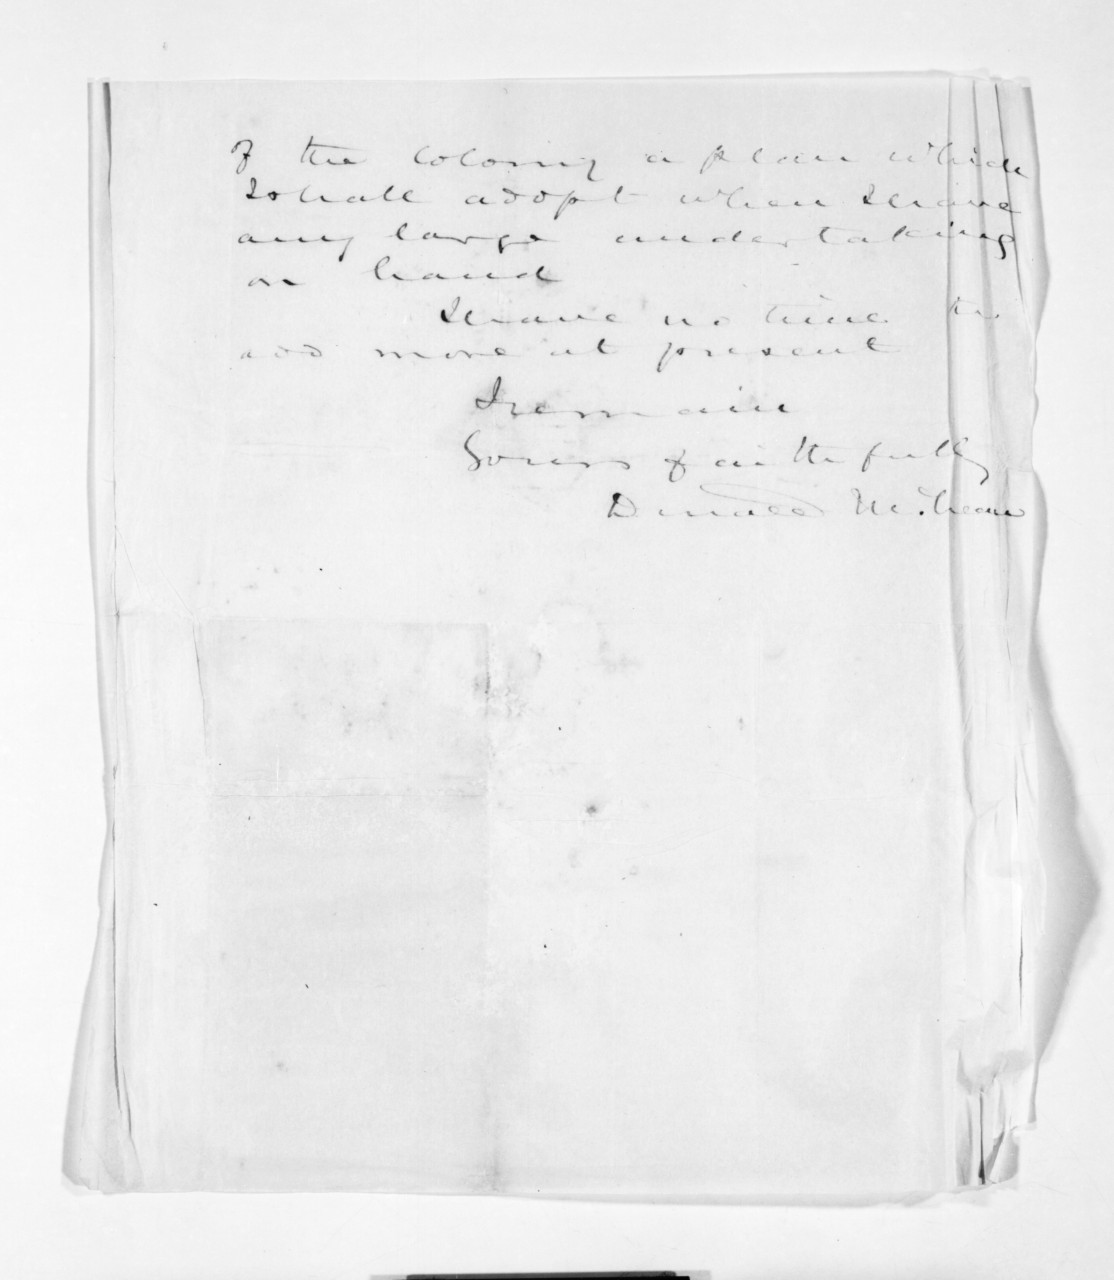 of the Colony a plan which
I shall adopt when I have
any large undertaking
on hand
I have no time to
add more at present
I remain
Yours faithfully
Donald McLean